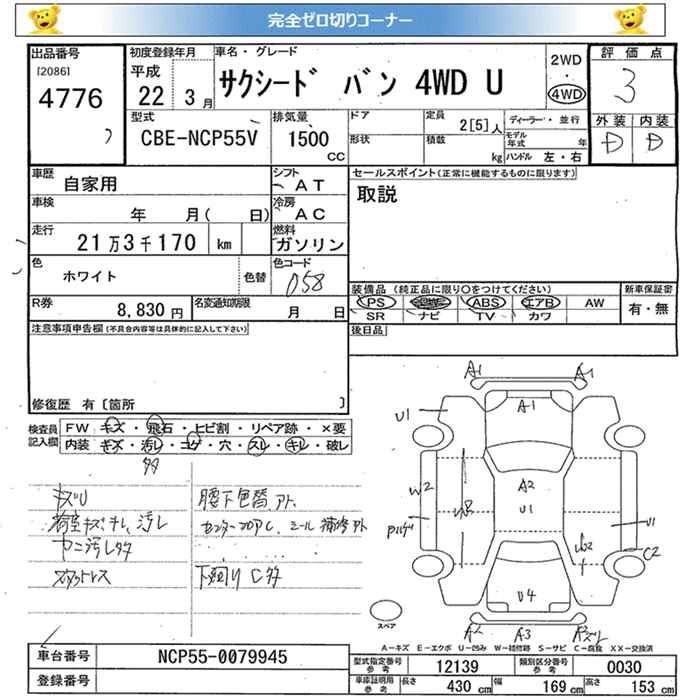 完全ゼロ切りコーナー
出品番号
[2086]
4776
初度登録年月
平成
22 3月
車名・グレード
サクシード バン 4WD U
2WD
・
4WD
評価点
3
外装 内装
D D
型式
CBE-NCP55V
排気量
1500
CC
ドア
形状
定員
2[5]人
積載
kg
ディーラー・並行
モデル年式 年
ハンドル 左・右
車歴
自家用
シフト
AT
車検
年 月( 日)
冷房
AC
走行
21万3千170 km
燃料
ガソリン
色
ホワイト
色替
色コード
058
R券
8,830円
名変通知期限
月 日
セールスポイント(正常に機能するものに限ります)
取説
装備品 (純正品に限り○をつけてください)
新車保証書
PS ABS エアB AW
有・無
SR ナビ TV カワ
後日品
注意事項申告欄(不具合内容等は具体的に記入して下さい)
修復歴 有 [箇所 ]
検査員記入欄
FW キズ・飛石・ヒビ割・リペア跡・×要
内装 キズ・汚レ・コゲ・穴・スレ・キレ・破レ
キズU
荷室キズ キレ 汚レ
ヤニ汚レ多
スタットレス
腰下色替アト
センターフロアC シール補修アト
下回りC多
A1 A1
A1
U1
A2
U1
W2
W2
W2
U1
C2
U4
A2 A3
スペア
A−キズ E−エクボ U−凹み W−補修跡 S−サビ C−腐蝕 XX−交換済
車台番号
NCP55-0079945
登録番号
型式指定番号 参考
12139
類別区分番号 参考
0030
車庫証明用 参考
長さ 430 cm 幅 169 cm 高さ 153 cm